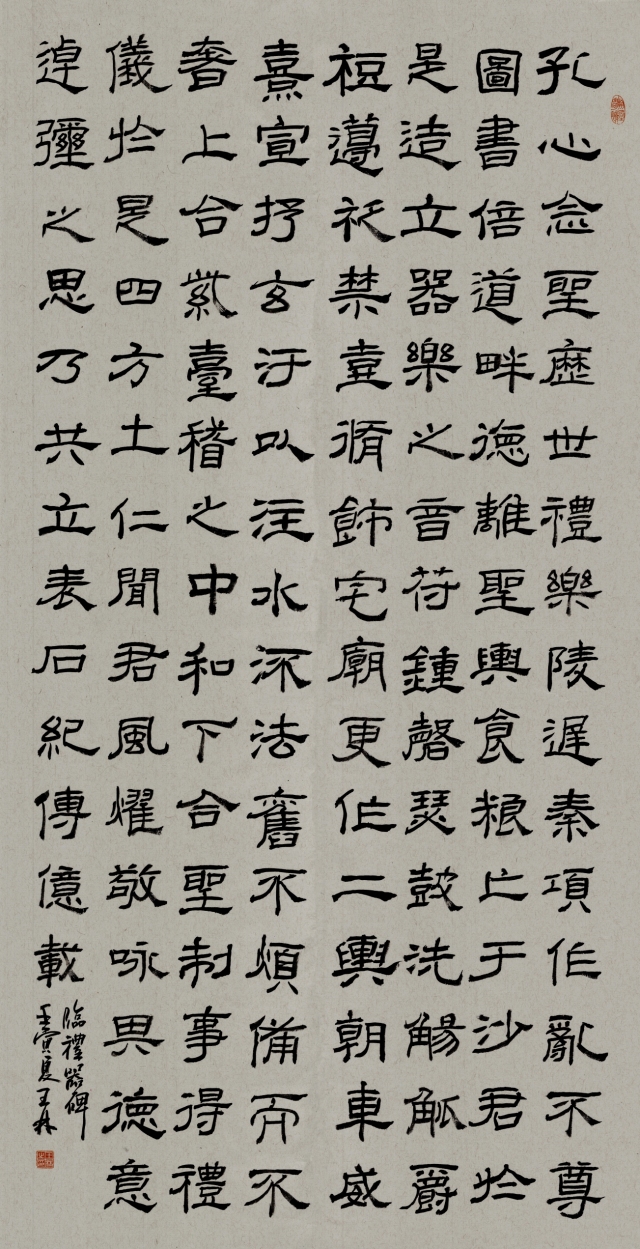 孔心念聖歷世禮樂陵遲秦項作亂不尊
圖書倍道畔德離聖輿食粮亡于沙君於
是造立器樂之音符鍾磬瑟鼓洗觴觚爵
梪籩柉禁壺脩飾宅廟更作二輿朝車威
熹宣抒玄汙以注水流法舊不煩備而不
奢上合紫臺稽之中和下合聖制事得禮
儀於是四方土仁聞君風燿敬咏其德意
逴彌之思乃共立表石紀傳億載
臨禮器碑
壬寅夏王林